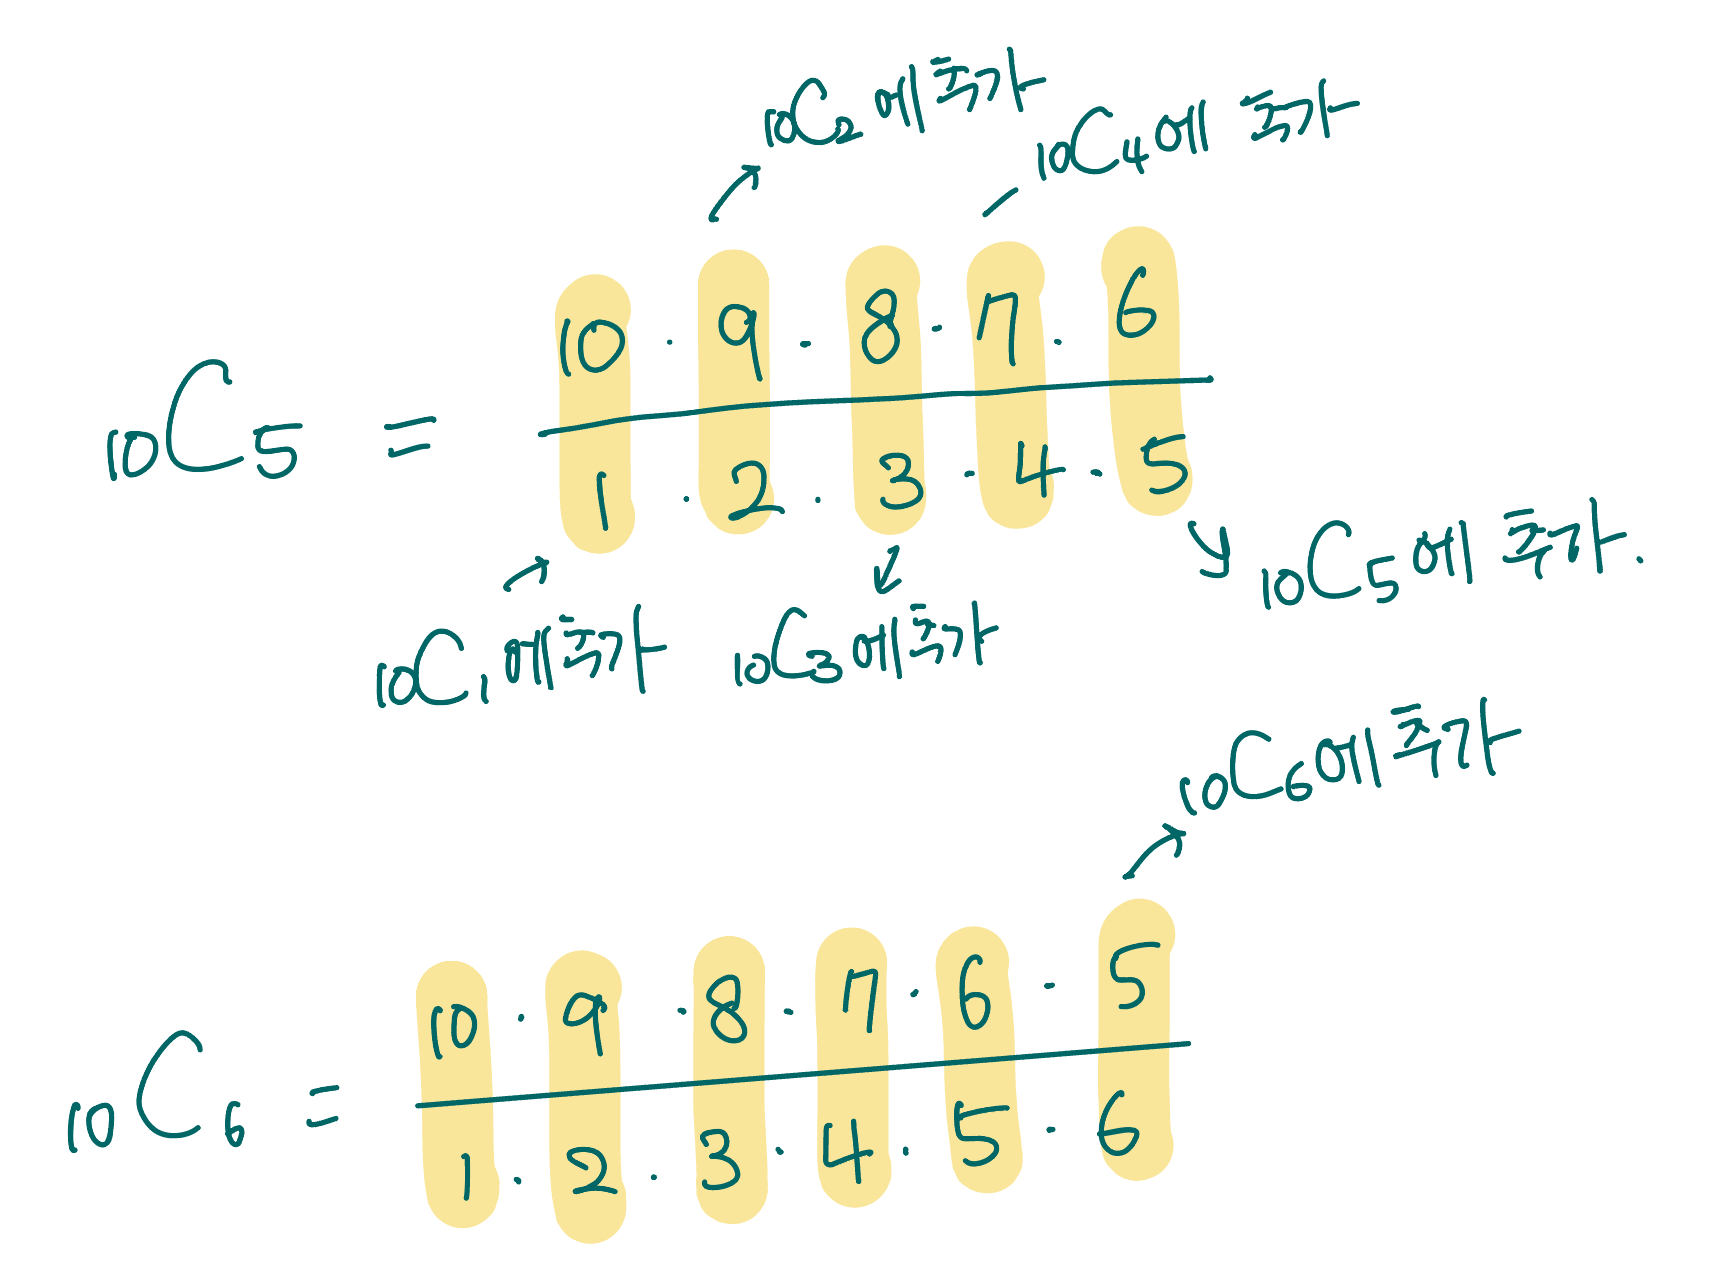 ₁₀C₂에 추가
₁₀C₄에 추가
₁₀C₅ = 10 · 9 · 8 · 7 · 6
1 · 2 · 3 · 4 · 5
₁₀C₅에 추가.
₁₀C₁에 추가
₁₀C₃에 추가
₁₀C₆에 추가
₁₀C₆ = 10 · 9 · 8 · 7 · 6 · 5
1 · 2 · 3 · 4 · 5 · 6